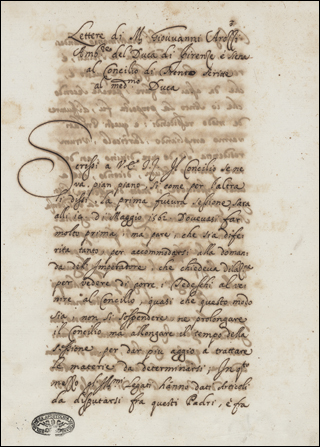 Lettere di M. Giovanni Strozzi
Amb.re del Duca di Firenze e Siena
al Concilio di Trento scritte
al med.mo Duca
Scrissi a V. E. Ill. Il Concilio se ne
va pian piano, si come per l'altra
dissi, la prima futura sessione sarà
alli 14 di Maggio 1562 Dovevasi far
molto prima, ma pare, che sia diferita
tanto per accommodarsi alla domanda
dell'Imperatore, che chiedeva
di vedere di porre i Tedeschi al venire
al Concilio, quasi che questo modo
sia, non si sospendere ne prolongare
il Concilio ma allongare il tempo della
sessione per dar più aggio a trattare
le materie da determinarsi. In
gl' Legati hanno dati Articoli
da disputarsi fra questi Padri, e fra